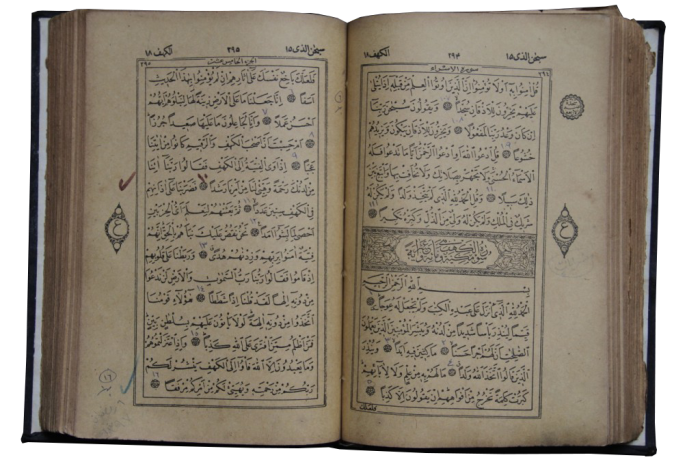 سبحن الذى ١٥ ٢٩٤ الكهف ١٨
سورة الاسراء
قل امنوا به اولا تؤمنوا ان الذين اوتوا العلم من قبله اذا يتلى
عليهم يخرون للاذقان سجدا ويقولون سبحن ربنا
ان كان وعد ربنا لمفعولا ويخرون للاذقان يبكون ويزيدهم
خشوعا قل ادعوا الله او ادعوا الرحمن ايا ما تدعوا فله
الاسماء الحسنى ولا تجهر بصلاتك ولا تخافت بها وابتغ بين
ذلك سبيلا وقل الحمد لله الذى لم يتخذ ولدا ولم يكن له
شريك فى الملك ولم يكن له ولى من الذل وكبره تكبيرا
سورة الكهف
بسم الله الرحمن الرحيم
الحمد لله الذى انزل على عبده الكتب ولم يجعل له عوجا
قيما لينذر باسا شديدا من لدنه ويبشر المؤمنين الذين يعملون
الصلحت ان لهم اجرا حسنا ماكثين فيه ابدا وينذر
الذين قالوا اتخذ الله ولدا ما لهم به من علم ولا لابائهم
كبرت كلمة تخرج من افواههم ان يقولون الا كذبا
فلعلك
سبحن الذى ١٥ ٢٩٥ الكهف ١٨
الجزء الخامس عشر
فلعلك باخع نفسك على اثارهم ان لم يؤمنوا بهذا الحديث
اسفا انا جعلنا ما على الارض زينة لها لنبلوهم ايهم
احسن عملا وانا لجاعلون ما عليها صعيدا جرزا
ام حسبت ان اصحب الكهف والرقيم كانوا من ايتنا
عجبا اذ اوى الفتية الى الكهف فقالوا ربنا اتنا
من لدنك رحمة وهيئ لنا من امرنا رشدا فضربنا على اذانهم
فى الكهف سنين عددا ثم بعثنهم لنعلم اى الحزبين
احصى لما لبثوا امدا نحن نقص عليك نباهم بالحق انهم
فتية امنوا بربهم وزدنهم هدى وربطنا على قلوبهم
اذ قاموا فقالوا ربنا رب السموات والارض لن ندعوا
من دونه الها لقد قلنا اذا شططا هؤلاء قومنا
اتخذوا من دونه الهة لولا ياتون عليهم بسلطن بين
فمن اظلم ممن افترى على الله كذبا واذ اعتزلتموهم
وما يعبدون الا الله فاوا الى الكهف ينشر لكم
ربكم من رحمته ويهيئ لكم من امركم مرفقا